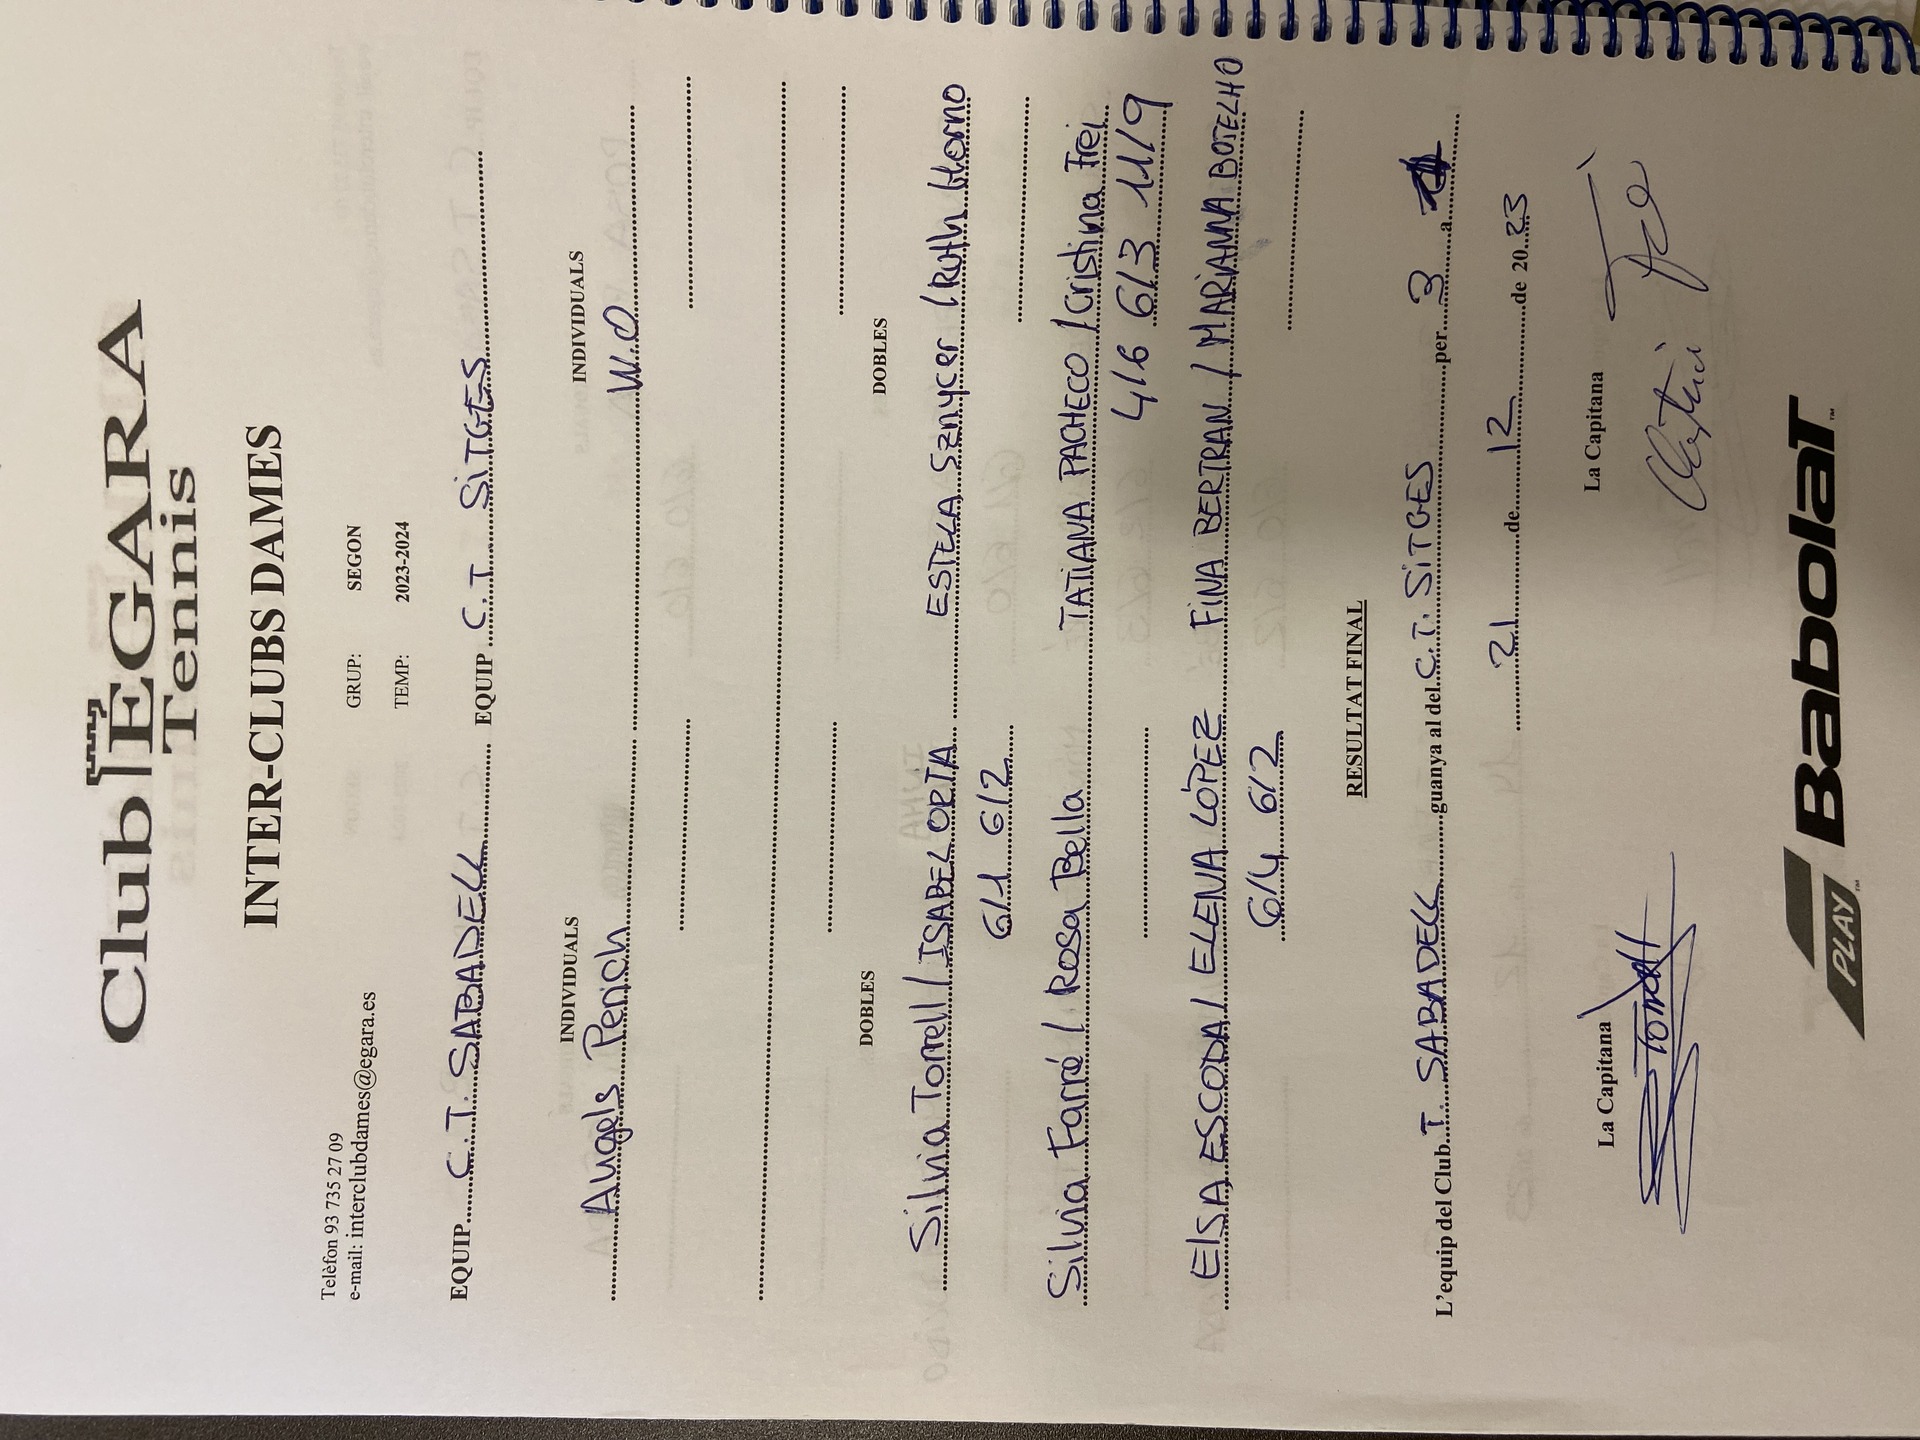 Club EGARA
Tennis
INTER-CLUBS DAMES
Telèfon 93 735 27 09
e-mail: interclubdames@egara.es
GRUP: SEGON
TEMP: 2023-2024
EQUIP C.T. SABADELL EQUIP C.T SITGES
INDIVIDUALS INDIVIDUALS
Àngels Perich W.O
DOBLES DOBLES
Silvia Torrell / ISABEL ORTA ESTELA Sznycer / Ruth Horno
6/1 6/2
Silvia Farré / Rosa Bella TATIANA PACHECO / Cristina Frei
4/6 6/3 11/9
ELSA ESCODA / ELENA LÓPEZ FINA BERTRAN / MARIANNA BOTELHO
6/4 6/2
RESULTAT FINAL
L'equip del Club T. SABADELL guanya al del C.T. SITGES per 3 a
21 de 12 de 2023
La Capitana La Capitana
Torrell
PLAY Babolat™